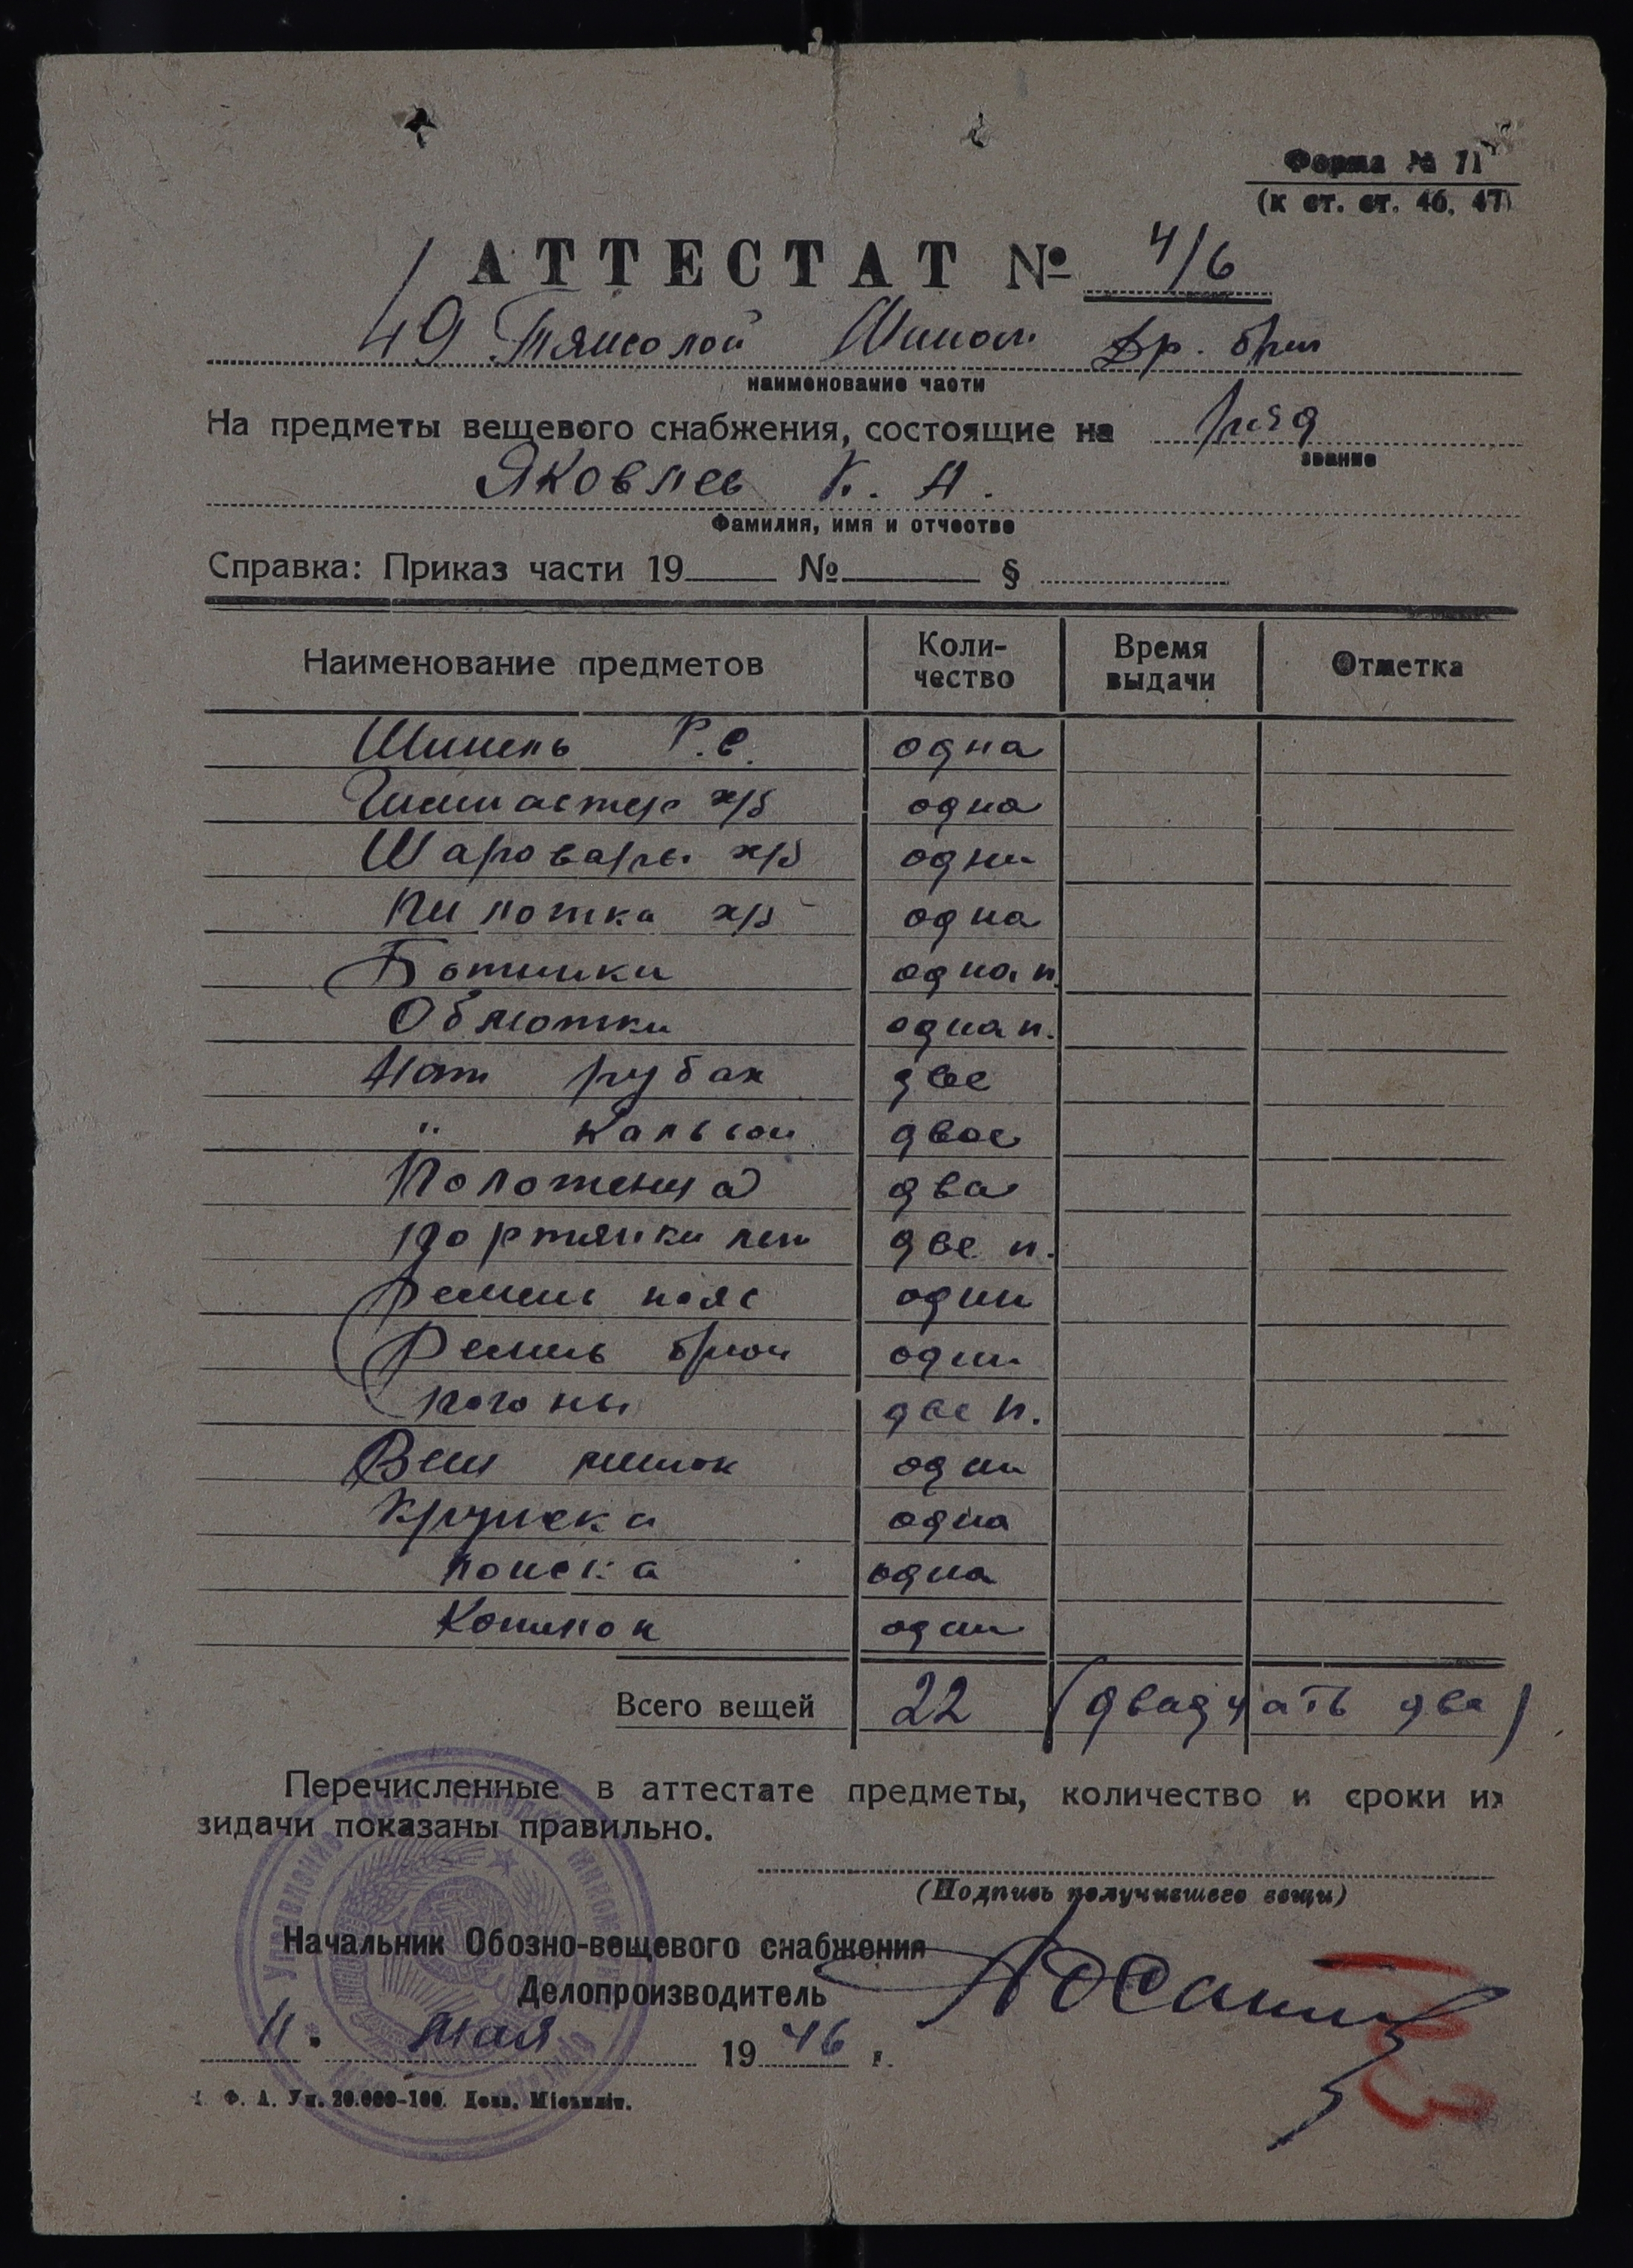 Форма № 71
(к ст. ст. 46, 47)
АТТЕСТАТ № 4/6
49 Тяжолой Мином Ар. бриг
наименование части
На предметы вещевого снабжения, состоящие на ряд
звание
Яковлев К. А.
Фамилия, имя и отчество
Справка: Приказ части 19 № §
Наименование предметов Коли-чество Время выдачи Отметка
Шинель Р.С. одна
Гимнастер х/б одна
Шаровары х/б одни
Пилотка х/б одна
Ботинки одна п.
Обмотки одна п.
Нат рубах две
" Кальсон двое
Полотенца два
Портянки лет две п.
Ремень пояс один
Ремень брюч один
Погоны две п.
Вещ мешок один
Кружка одна
Ложка одна
Котилок один
Всего вещей 22 (двадцать два)
Перечисленные в аттестате предметы, количество и сроки их
видачи показаны правильно.
(Подпись получившего вещи)
Начальник Обозно-вещевого снабжения
Делопроизводитель
11. мая 1946 г.
Ф. А. Ун. 20.000-100.
Управление